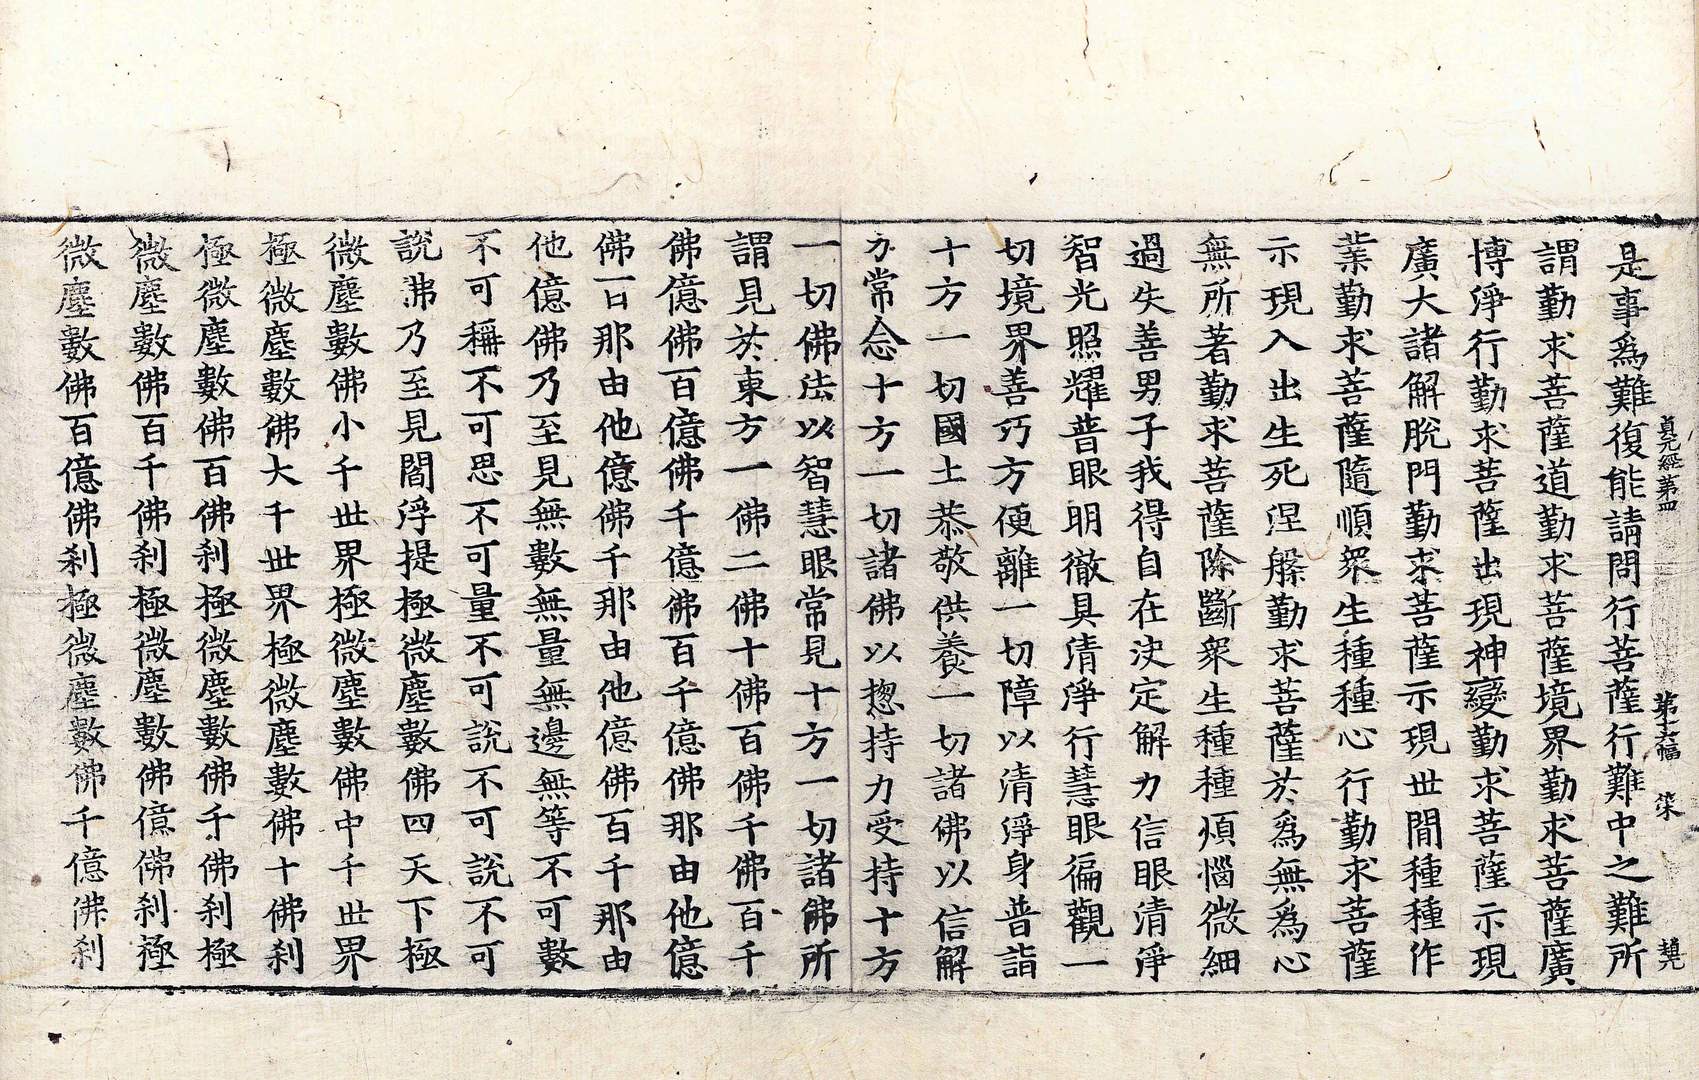 貞元經第四 第十六幅 柒
是事爲難復能請問行菩薩行難中之難所
謂勤求菩薩道勤求菩薩境界勤求菩薩廣
博淨行勤求菩薩出現神變勤求菩薩示現
廣大諸解脫門勤求菩薩示現世間種種作
業勤求菩薩隨順衆生種種心行勤求菩薩
示現入出生死涅槃勤求菩薩於爲無爲心
無所著勤求菩薩除斷衆生種種煩惱微細
過失善男子我得自在決定解力信眼清淨
智光照耀普眼明徹具清淨行慧眼徧觀一
切境界善巧方便離一切障以清淨身普詣
十方一切國土恭敬供養一切諸佛以信解
力常念十方一切諸佛以揔持力受持十方
一切佛法以智慧眼常見十方一切諸佛所
謂見於東方一佛二佛十佛百佛千佛百千
佛億佛百億佛千億佛百千億佛那由他億
佛百那由他億佛千那由他億佛百千那由
他億佛乃至見無數無量無邊無等不可數
不可稱不可思不可量不可說不可說不可
說沸乃至見閻浮提極微塵數佛四天下極
微塵數佛小千世界極微塵數佛中千世界
極微塵數佛大千世界極微塵數佛十佛刹
極微塵數佛百佛刹極微塵數佛千佛刹極
微塵數佛百千佛刹極微塵數佛億佛刹極
微塵數佛百億佛刹極微塵數佛千億佛刹